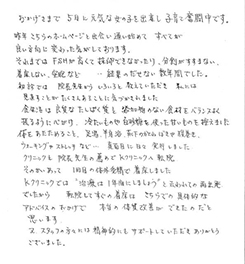 おかげさまで 5月に元気な女の子を出産し 子育て奮闘中です。
昨年こちらのホームページと出会い通い始めて すべてが
良い方向に変わった気がしております。
それまでは FSHが高くて採卵できなかったり、分割がすすまない、
着床しない、化学など … 結果のだせない数年間でした。
相談では 院長先生から いろいろと教えていただき 私には
見直すことが たくさんあることに気づかされました。
食生活は 良質なたんぱく質と 添加物のない食材をバランスよく
採るように心がけ、冷たいものや白砂糖を使った甘いものを控えました。
体をあたためること、
ウォーキングやストレッチなど … 真面目に日々 実行しました
クリニックも 院長先生の薦めで Kクリニックへ転院
そのかいあって 1回目の体外受精で着床しました
Kクリニックでは "治療は1年位にしましょう" と云われての再出発
でしたから 転院してすぐの着床は こちらでの具体的な
アドバイスのおかげで 本当の体質改善が できたのだと
思います。
又、スタッフの方々には精神的にもサポートしていただきありがとう
ございました。